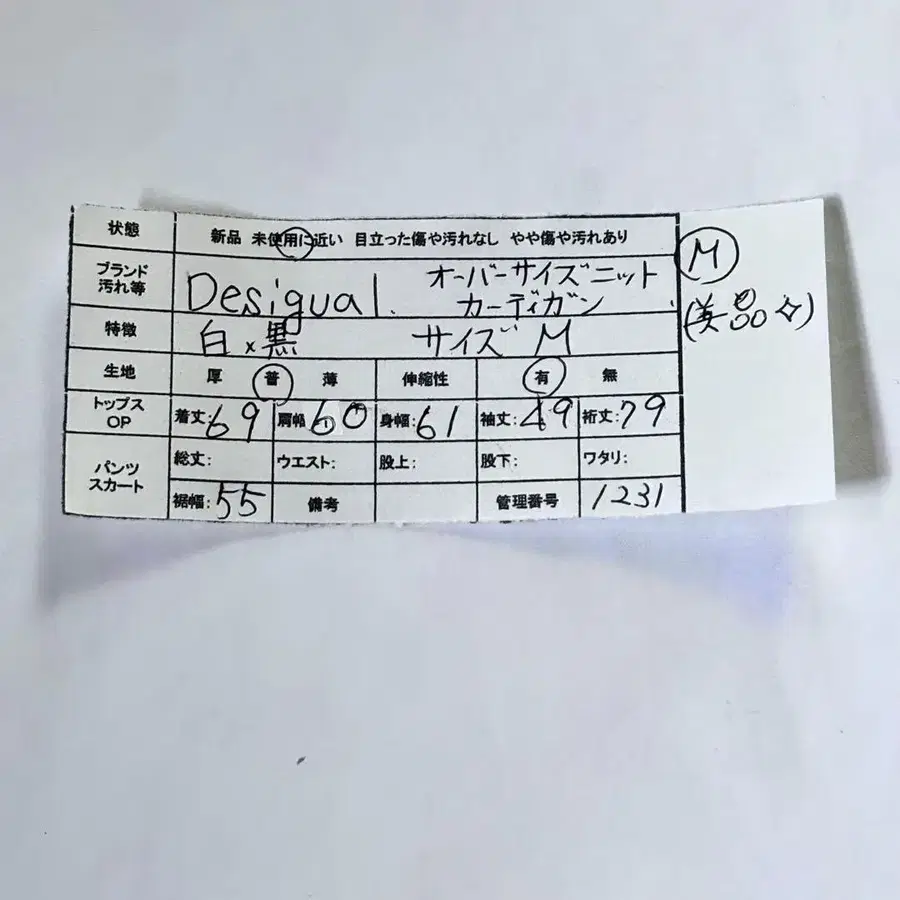 状態 新品 未使用に近い 目立った傷や汚れなし やや傷や汚れあり
M
(美品✧)
ブランド 汚れ等 Desigual. オーバーサイズニット
カーディガン
特徴 白×黒 サイズM
生地 厚 普 薄 伸縮性 有 無
トップス OP 着丈:69 肩幅:60 身幅:61 袖丈:49 裄丈:79
パンツ スカート 総丈: ウエスト: 股上: 股下: ワタリ:
裾幅:55 備考 管理番号 1231